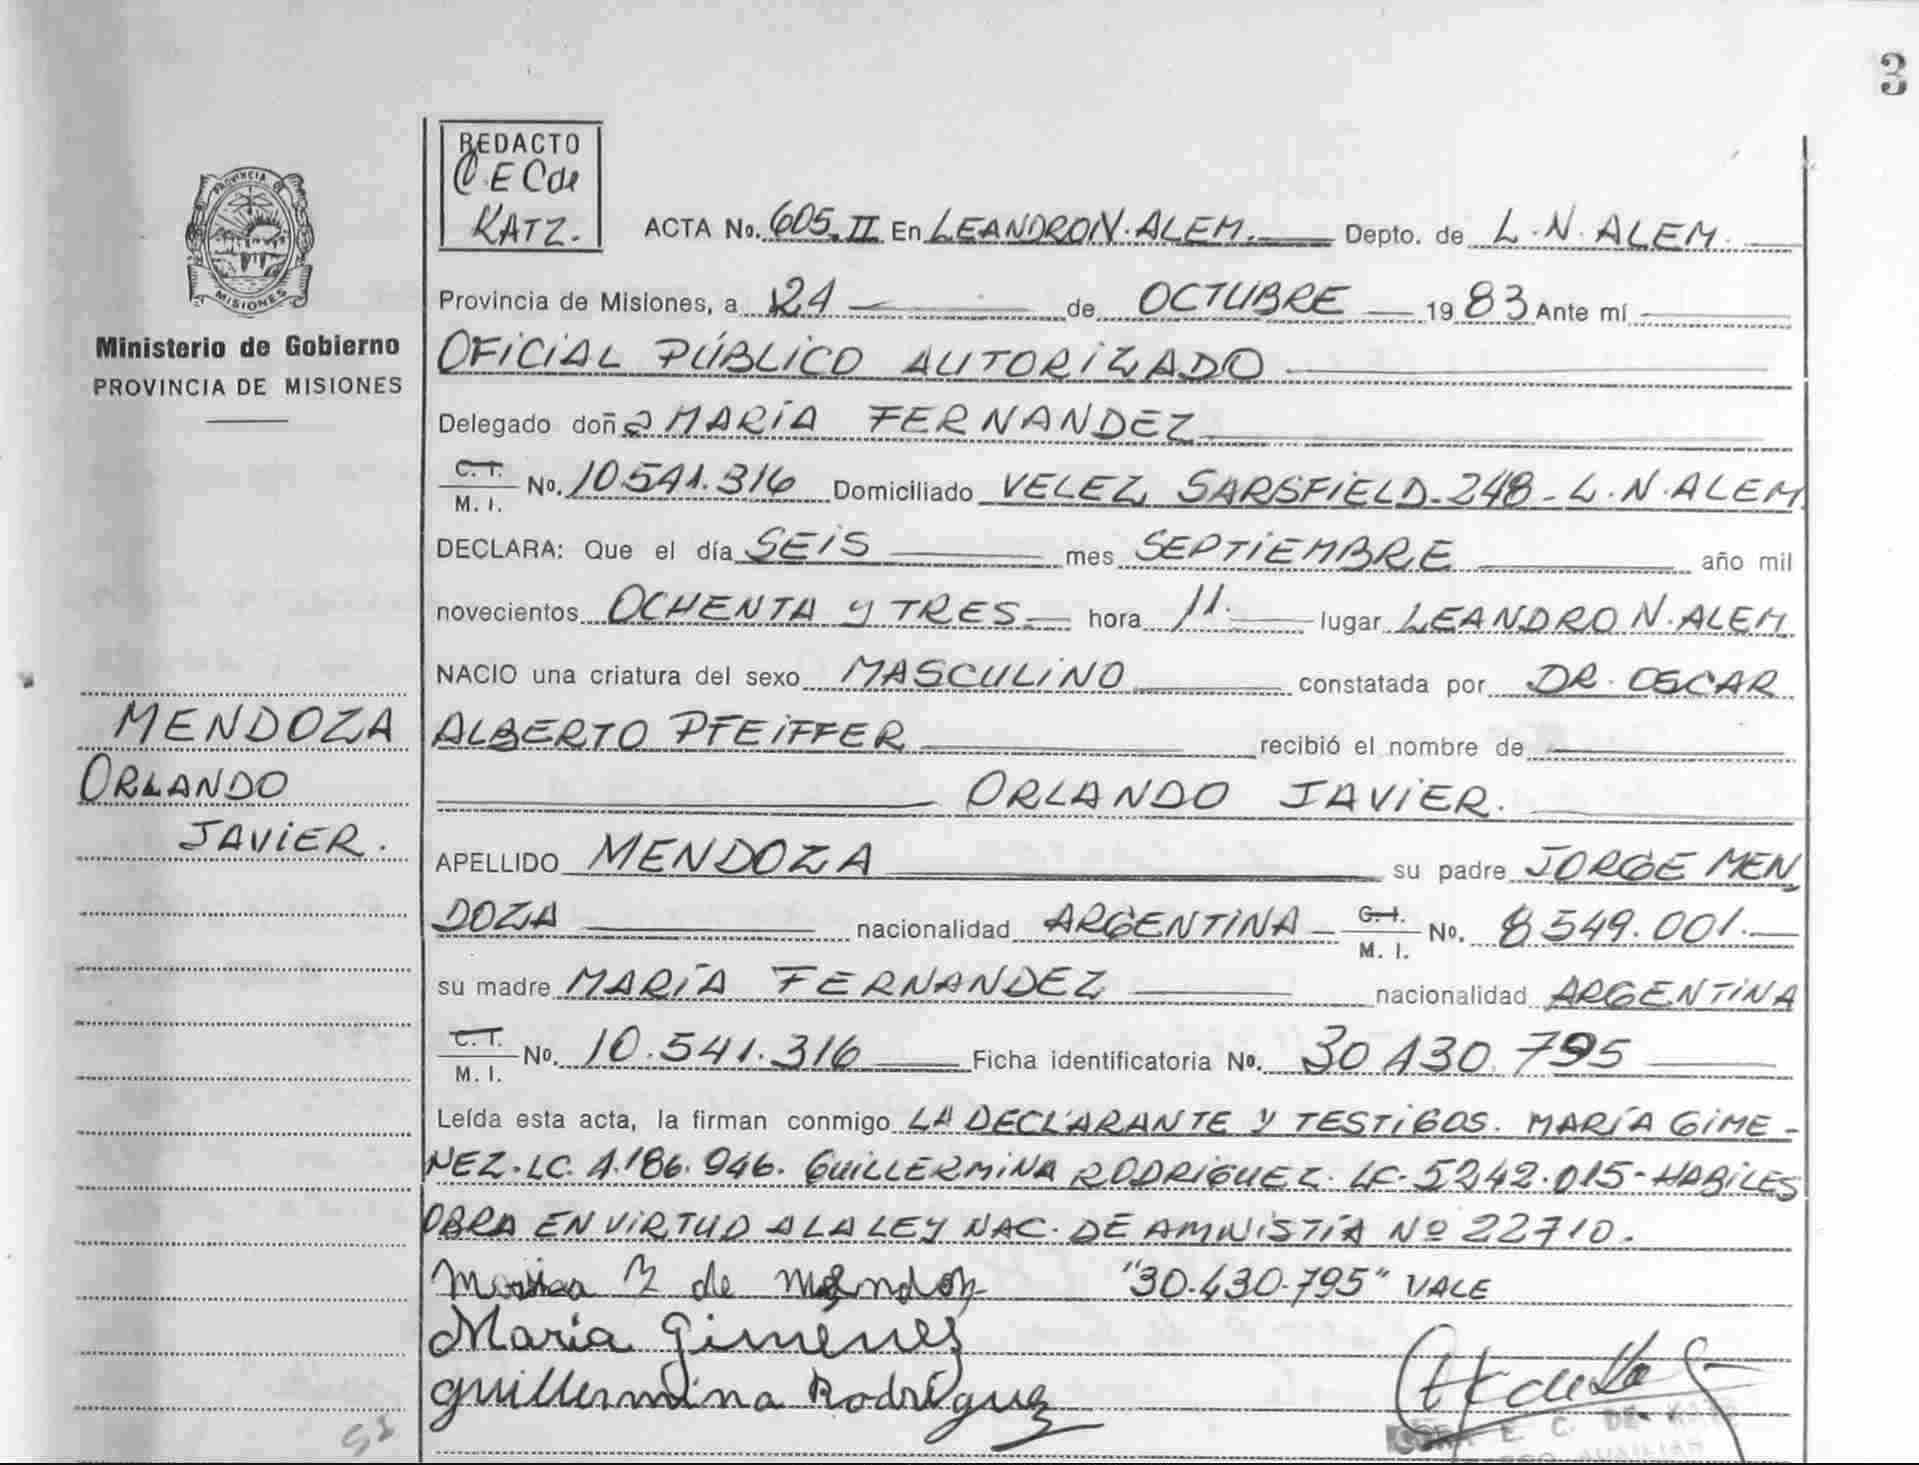 3
REDACTO
C.E C de
KATZ.
PROVINCIA DE
MISIONES
Ministerio de Gobierno
PROVINCIA DE MISIONES
ACTA No. 605.II En LEANDRO N. ALEM. Depto. de L. N. ALEM.
Provincia de Misiones, a 24 de OCTUBRE 1983 Ante mí
OFICIAL PÚBLICO AUTORIZADO
Delegado doña MARÍA FERNANDEZ
C. I.
M. I. No. 10.541.316 Domiciliado VELEZ SARSFIELD-248-L.N.ALEM
DECLARA: Que el día SEIS mes SEPTIEMBRE año mil
novecientos OCHENTA y TRES hora 11. lugar LEANDRO N. ALEM
NACIO una criatura del sexo MASCULINO constatada por DR. OSCAR
ALBERTO PFEIFFER recibió el nombre de
ORLANDO JAVIER.
MENDOZA
ORLANDO
JAVIER.
APELLIDO MENDOZA su padre JORGE MEN
DOZA nacionalidad ARGENTINA C. I. M. I. No. 8.549.001.
su madre MARÍA FERNANDEZ nacionalidad ARGENTINA
C. I.
M. I. No. 10.541.316 Ficha identificatoria No. 30.430.795
Leída esta acta, la firman conmigo LA DECLARANTE Y TESTIGOS. MARÍA GIME-
NEZ. LC. 4.186.946. GUILLERMINA RODRIGUEZ. LC. 5.242.015-HABILES
OBRA EN VIRTUD A LA LEY NAC. DE AMNISTÍA Nº 22710.
de "30.430.795" VALE
María Gimenez
guillermina Rodríguez
E. C. DE KATZ
AUXILIAR